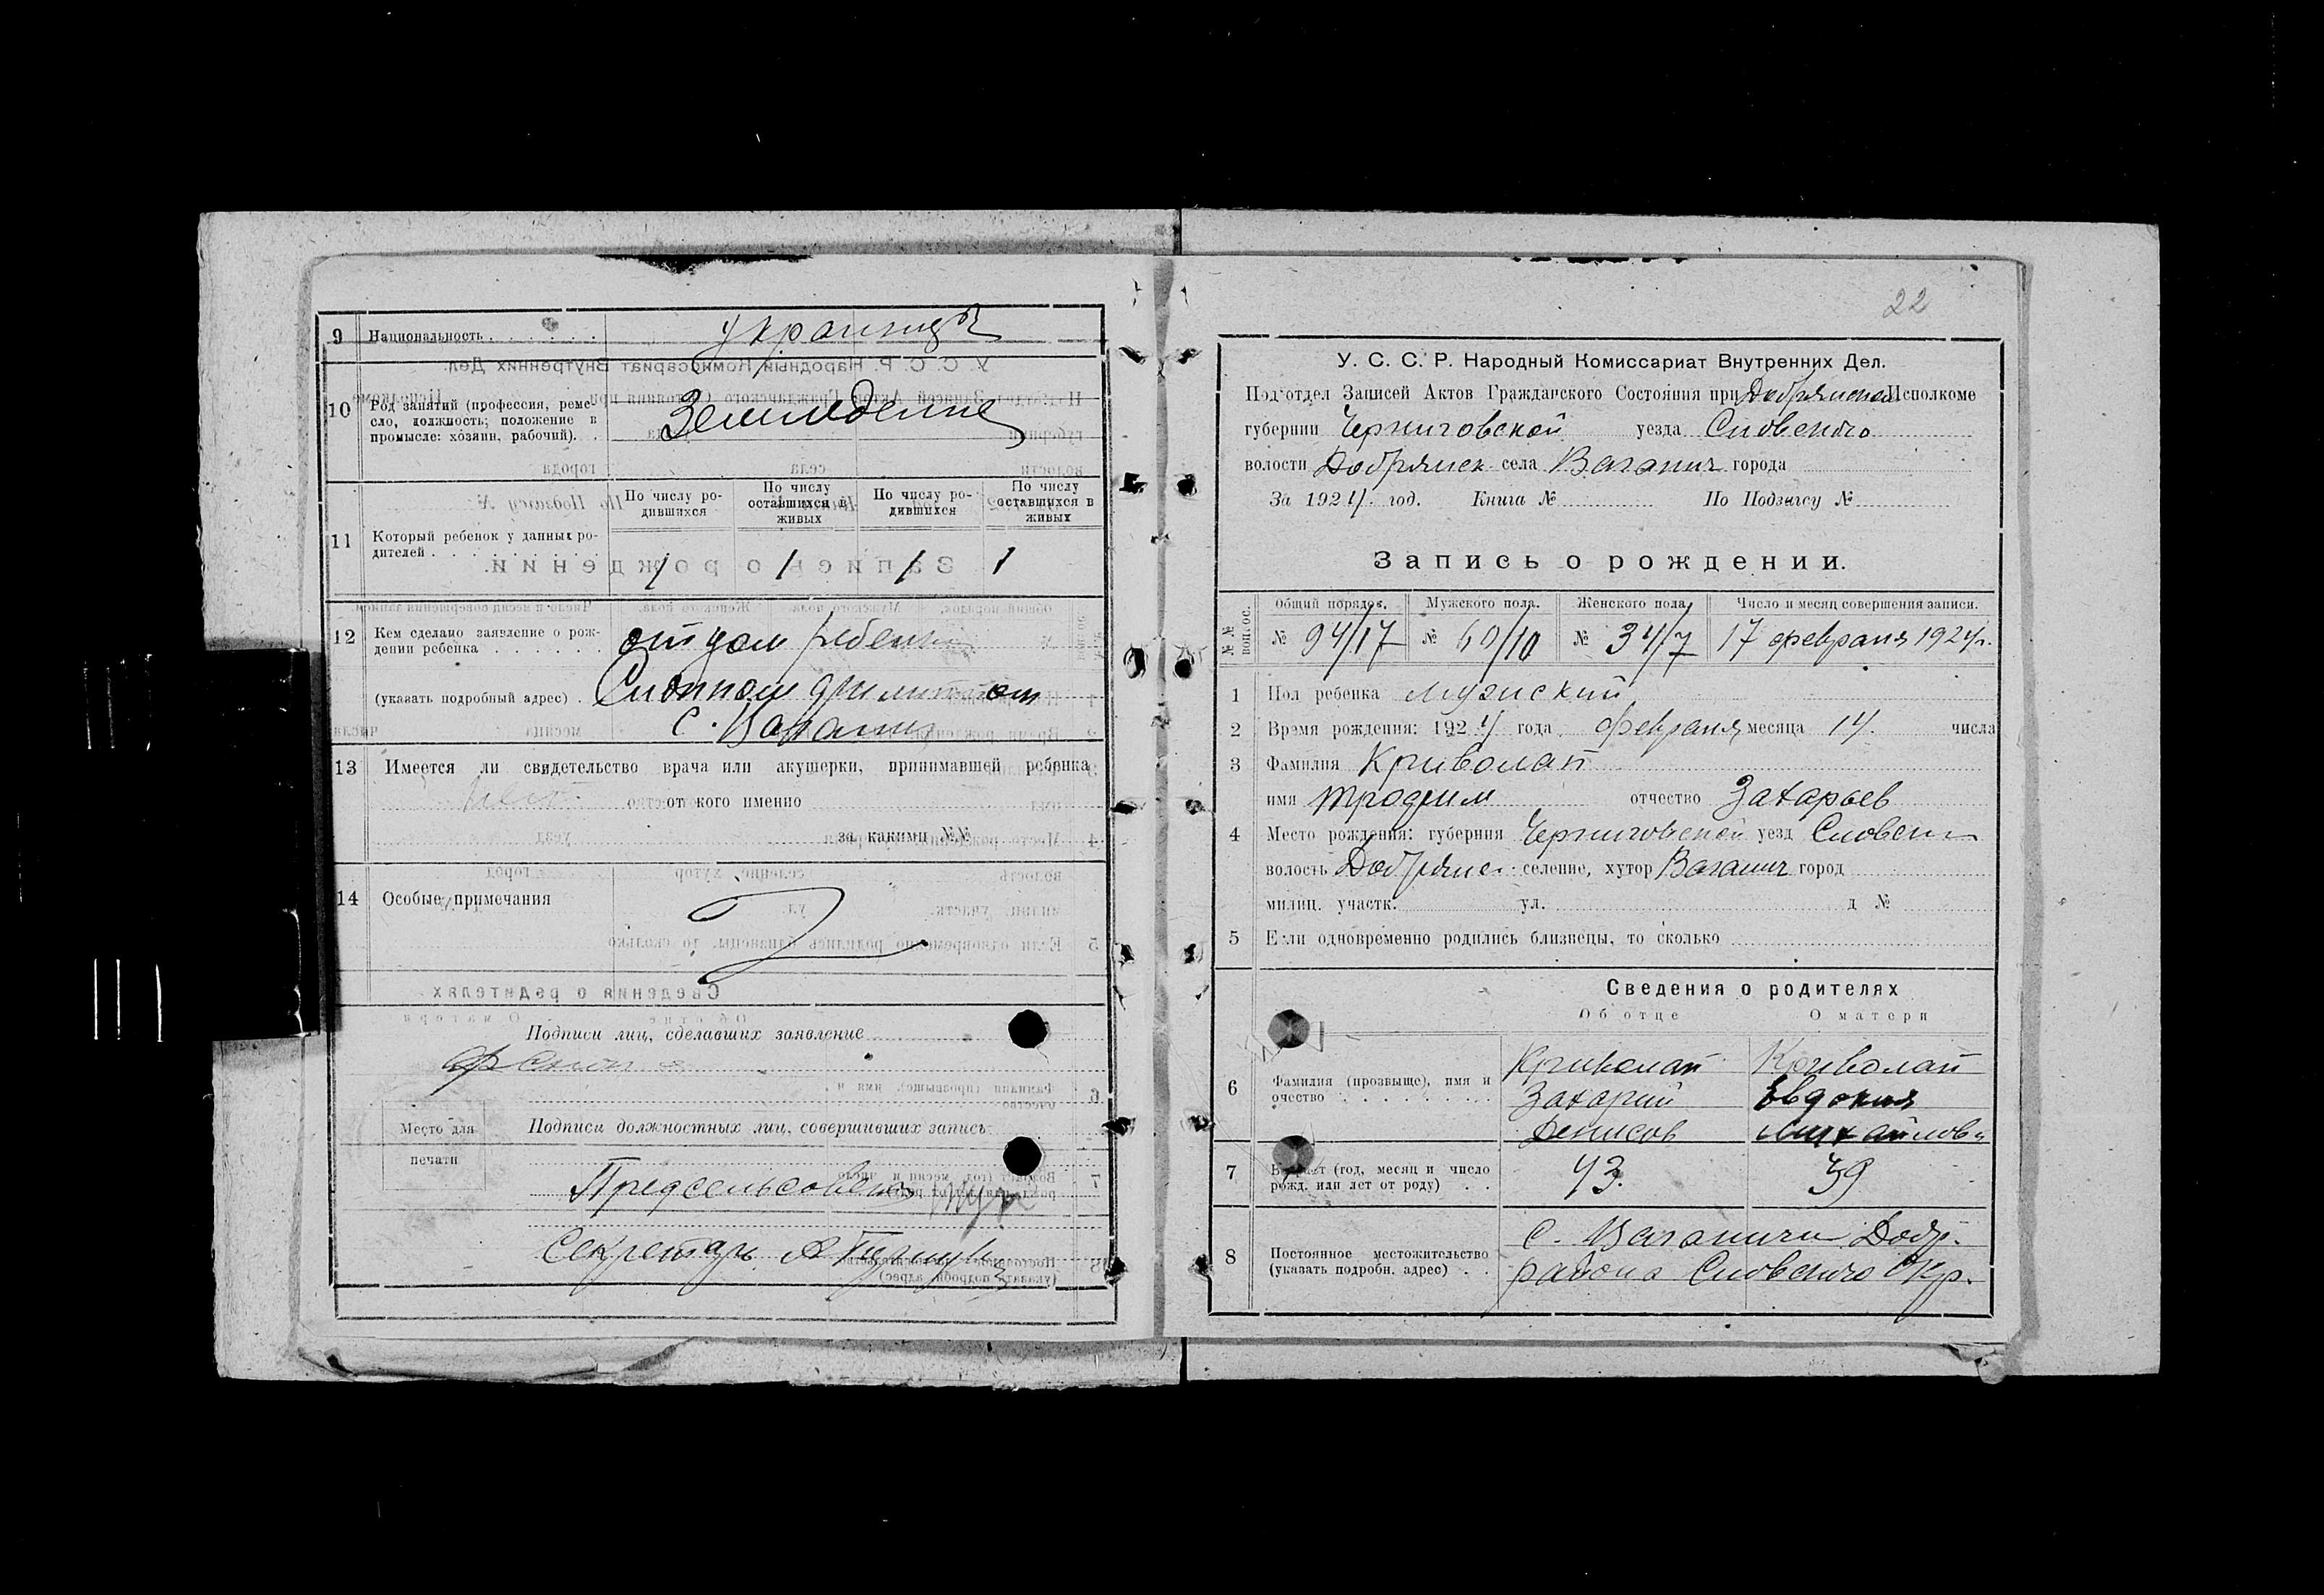 9 Национальность . . . . . . украинцы
10 Род занятий (профессия, реме-
сло, должность; положение в
промысле: хозяин, рабочий). .
Земледелие
11 Который ребенок у данных ро-
дителей . . . . . . . . .
По числу ро-
дившихся
По числу
оставшихся в
живых
По числу ро-
дившихся
По числу
оставшихся в
живых
1 1 1 1
12 Кем сделано заявление о рож-
дении ребенка . . . . . . отцом ребенка
(указать подробный адрес) .
с.
13 Имеется ли свидетельство врача или акушерки, принимавшей ребенка
нет от кого именно
за какими №№
14 Особые примечания
Подписи лиц, сделавших заявление
Место для
печати
Подписи должностных лиц, совершивших запись
Предсельсовета
Секретарь
22
У. С. С. Р. Народный Комиссариат Внутренних Дел.
Подотдел Записей Актов Гражданского Состояния при Добрянском Исполкоме
губернии Черниговской уезда Сновского
волости Добрянск села Ваганич города
За 1924 год. Книга № По Подзагсу №
Запись о рождении.
№№ вопрос.
Общий порядок. Мужского пола. Женского пола. Число и месяц совершения записи.
№ 94/17 № 60/10 № 34/7 17 февраля 1924 г.
1 Пол ребенка Мужской
2 Время рождения: 1924 года февраля месяца 14 числа
3 Фамилия Криволап
имя Трофим отчество Захарьев
4 Место рождения: губерния Черниговской уезд Сновск
волость Добрянс. селение, хутор Ваганич город
милиц. участк. ул. д №
5 Если одновременно родились близнецы, то сколько
Сведения о родителях
Об отце О матери
6 Фамилия (прозвыще), имя и
очество . . . . . . . . .
Криволап
Захарий
Денисов
Криволап
Евдокия
Михайловн
7 Возраст (год, месяц и число
рожд. или лет от роду) . .
43. 39
8 Постоянное местожительство
(указать подробн. адрес) . .
с. Ваганичи Добр.
района Сновского Окр.